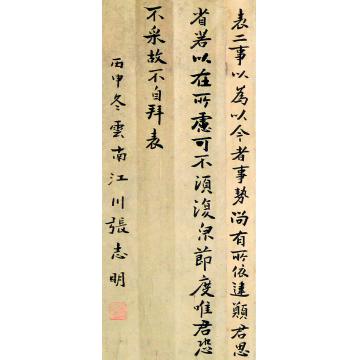 表二事以為以今者事勢尚有所依違願君思
省若以在所慮可不須復節度唯君恐
不采故不自拜表
丙申冬雲南江川張志明